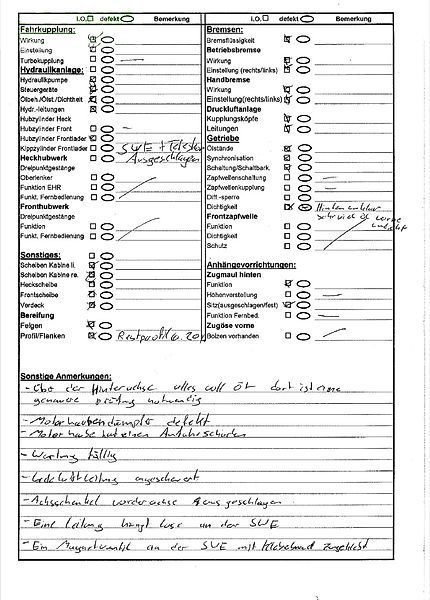 I.O. defekt Bemerkung
Fahrkupplung:
Wirkung
Einstellung
Turbokupplung
Hydraulikanlage:
Hydraulikpumpe
Steuergeräte
Ölbeh./Ölst./Dichtheit
Hydr.-leitungen
Hubzylinder Heck
Hubzylinder Front
Hubzylinder Frontlader
Kippzylinder Frontlader SWE +
Ausgeschlagen
Heckhubwerk
Dreipunktgestänge
Oberlenker
Funktion EHR
Funkt. Fernbedienung
Fronthubwerk
Dreipunktgestänge
Funktion
Funkt. Fernbedienung
Sonstiges:
Scheiben Kabine li.
Scheiben Kabine re.
Heckscheibe
Frontscheibe
Verdeck
Bereifung
Felgen
Profil/Flanken Restprofil ca. 20
I.O. defekt Bemerkung
Bremsen:
Bremsflüssigkeit
Betriebsbremse
Wirkung
Einstellung (rechts/links)
Handbremse
Wirkung
Einstellung(rechts/links)
Druckluftanlage
Kupplungsköpfe
Leitungen
Getriebe
Ölstände
Synchronisation
Schaltung/Schaltbark.
Zapfwellenschaltung
Zapfwellenkupplung
Diff.-sperre
Dichtigkeit Hinten
Frontzapfwelle
Funktion
Dichtigkeit
Schutz
Anhängevorrichtungen:
Zugmaul hinten
Funktion
Höhenverstellung
Sitz(ausgeschlagen/fest)
Funktion Fernbed.
Zugöse vorne
Bolzen vorhanden
Sonstige Anmerkungen:
- Über der Hinterachse alles voll Öl dort ist eine
genauere Prüfung notwendig
- Motorhaubendämpfer defekt
- Motorhaube hat einen Anfahrschaden
- Wartung fällig
- Ladeluftleitung angescheuert
- Achsschenkel vorderachse ausgeschlagen
- Eine Leitung hängt lose an der SWE
- Ein Magnetventil an der SWE mit Klebeband zugeklebt